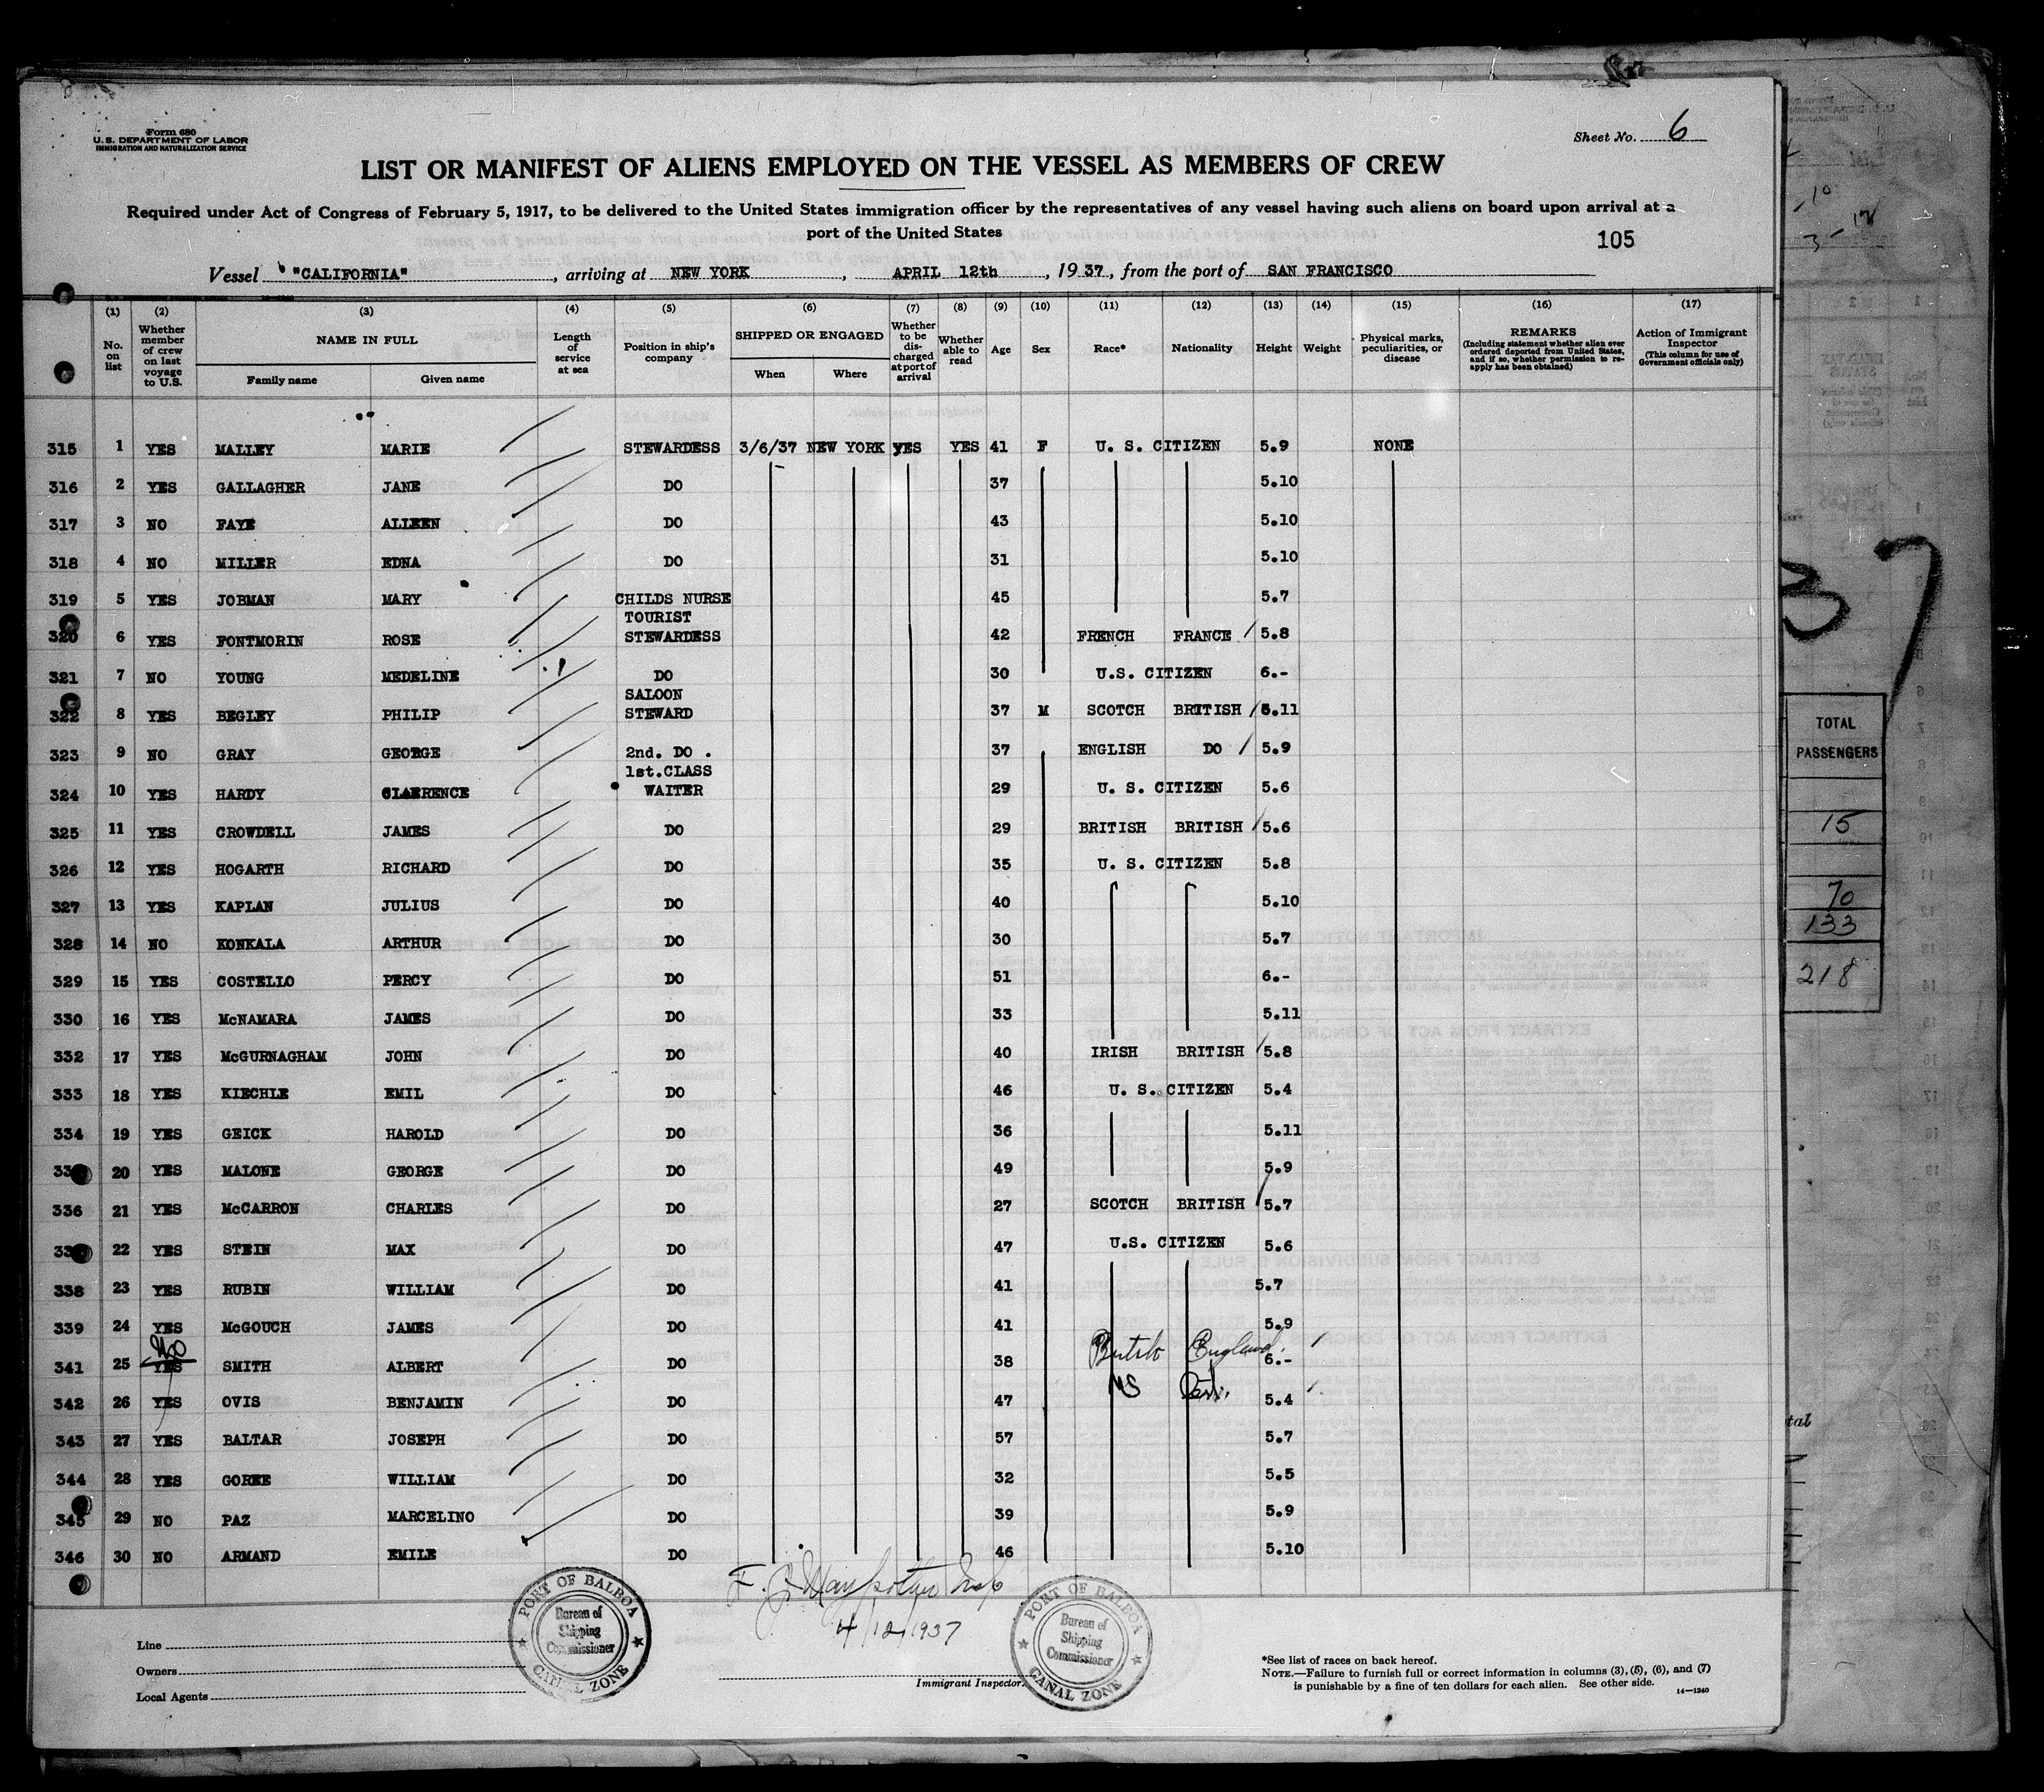 Form 680
U. S. DEPARTMENT OF LABOR
IMMIGRATION AND NATURALIZATION SERVICE
Sheet No. 6
LIST OR MANIFEST OF ALIENS EMPLOYED ON THE VESSEL AS MEMBERS OF CREW
Required under Act of Congress of February 5, 1917, to be delivered to the United States immigration officer by the representatives of any vessel having such aliens on board upon arrival at a
port of the United States
105
Vessel "CALIFORNIA", arriving at NEW YORK, APRIL 12th, 1937, from the port of SAN FRANCISCO
(1) (2) (3) (4) (5) (6) (7) (8) (9) (10) (11) (12) (13) (14) (15) (16) (17)
No. on list
Whether member of crew on last voyage to U.S.
NAME IN FULL
Family name Given name
Length of service at sea
Position in ship's company
SHIPPED OR ENGAGED
When Where
Whether to be discharged at port of arrival
Whether able to read
Age Sex Race* Nationality Height Weight
Physical marks, peculiarities, or disease
REMARKS
(Including statement whether alien ever ordered deported from United States, and if so, whether permission to reapply has been obtained)
Action of Immigrant Inspector
(This column for use of Government officials only)
315 1 YES MALLEY MARIE STEWARDESS 3/6/37 NEW YORK YES YES 41 F U. S. CITIZEN 5.9 NONE
316 2 YES GALLAGHER JANE DO 37 5.10
317 3 NO FAYE AILEEN DO 43 5.10
318 4 NO MILLER EDNA DO 31 5.10
319 5 YES JOBMAN MARY CHILDS NURSE 45 5.7
320 6 YES FONTMORIN ROSE TOURIST STEWARDESS 42 FRENCH FRANCE 5.8
321 7 NO YOUNG MEDELINE DO 30 U.S. CITIZEN 6.-
322 8 YES BEGLEY PHILIP SALOON STEWARD 37 M SCOTCH BRITISH 5.11
323 9 NO GRAY GEORGE 2nd. DO . 37 ENGLISH DO 5.9
324 10 YES HARDY CLARRENCE 1st.CLASS WAITER 29 U. S. CITIZEN 5.6
325 11 YES CROWDELL JAMES DO 29 BRITISH BRITISH 5.6
326 12 YES HOGARTH RICHARD DO 35 U. S. CITIZEN 5.8
327 13 YES KAPLAN JULIUS DO 40 5.10
328 14 NO KONKALA ARTHUR DO 30 5.7
329 15 YES COSTELLO PERCY DO 51 6.-
330 16 YES McNAMARA JAMES DO 33 5.11
332 17 YES McGURNAGHAM JOHN DO 40 IRISH BRITISH 5.8
333 18 YES KIECHLE EMIL DO 46 U. S. CITIZEN 5.4
334 19 YES GEICK HAROLD DO 36 5.11
33 20 YES MALONE GEORGE DO 49 5.9
336 21 YES McCARRON CHARLES DO 27 SCOTCH BRITISH 5.7
33 22 YES STEIN MAX DO 47 U.S. CITIZEN 5.6
338 23 YES RUBIN WILLIAM DO 41 5.7
339 24 YES McGOUCH JAMES DO 41 5.9
341 25 YES No SMITH ALBERT DO 38 British England. 6.-
342 26 YES OVIS BENJAMIN DO 47 US 5.4
343 27 YES BALTAR JOSEPH DO 57 5.7
344 28 YES GOREE WILLIAM DO 32 5.5
345 29 NO PAZ MARCELINO DO 39 5.9
346 30 NO ARMAND EMILE DO 46 5.10
4/12/1937
PORT OF BALBOA
Bureau of
Shipping
Commissioner
CANAL ZONE
PORT OF BALBOA
Bureau of
Shipping
Commissioner
CANAL ZONE
Line
Owners
Local Agents
Immigrant Inspector.
*See list of races on back hereof.
NOTE.—Failure to furnish full or correct information in columns (3), (5), (6), and (7)
is punishable by a fine of ten dollars for each alien. See other side.
14—1240
37
TOTAL
PASSENGERS
15
70
133
218